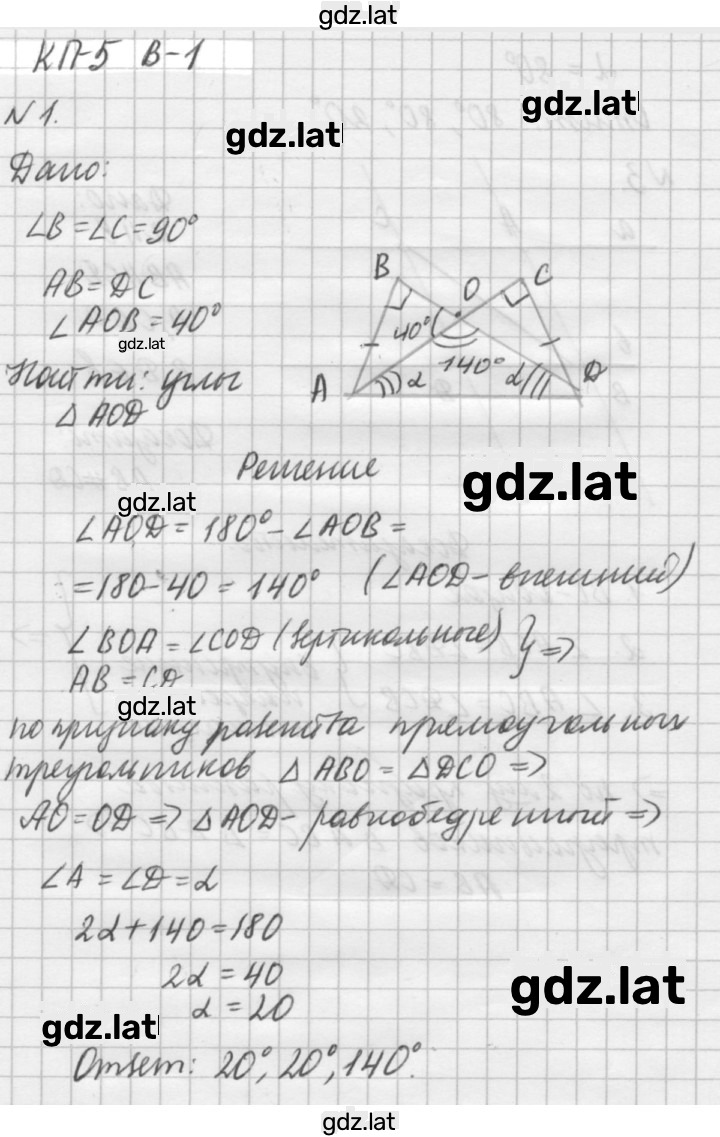 gdz.latl
КП-5 В-1
gdz.latl
N 1.
gdz.latl
Дано:
∠B = ∠C = 90°
AB = DC
∠AOB = 40°
gdz.latl
Найти: углы
△ AOD
B O C
40°
140°
A α α D
Решение
gdz.latl
gdz.latl
∠AOD = 180° - ∠AOB =
= 180 - 40 = 140° (∠AOD - внешний)
∠BOA = ∠COD (вертикальные) } =>
AB = CD
gdz.latl
по признаку равенства прямоугольных
треугольников △ ABO = △DCO =>
AO = OD => △ AOD - равнобедренный =>
∠A = ∠D = α
2α + 140 = 180
2α = 40
gdz.latl
α = 20
gdz.latl
Ответ: 20°, 20°, 140°.
gdz.latl